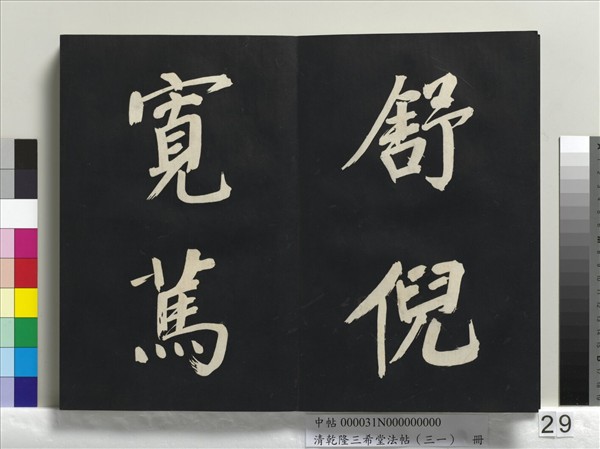 舒倪
寬篤
中帖 000031N000000000
清乾隆三希堂法帖（三一） 冊
29